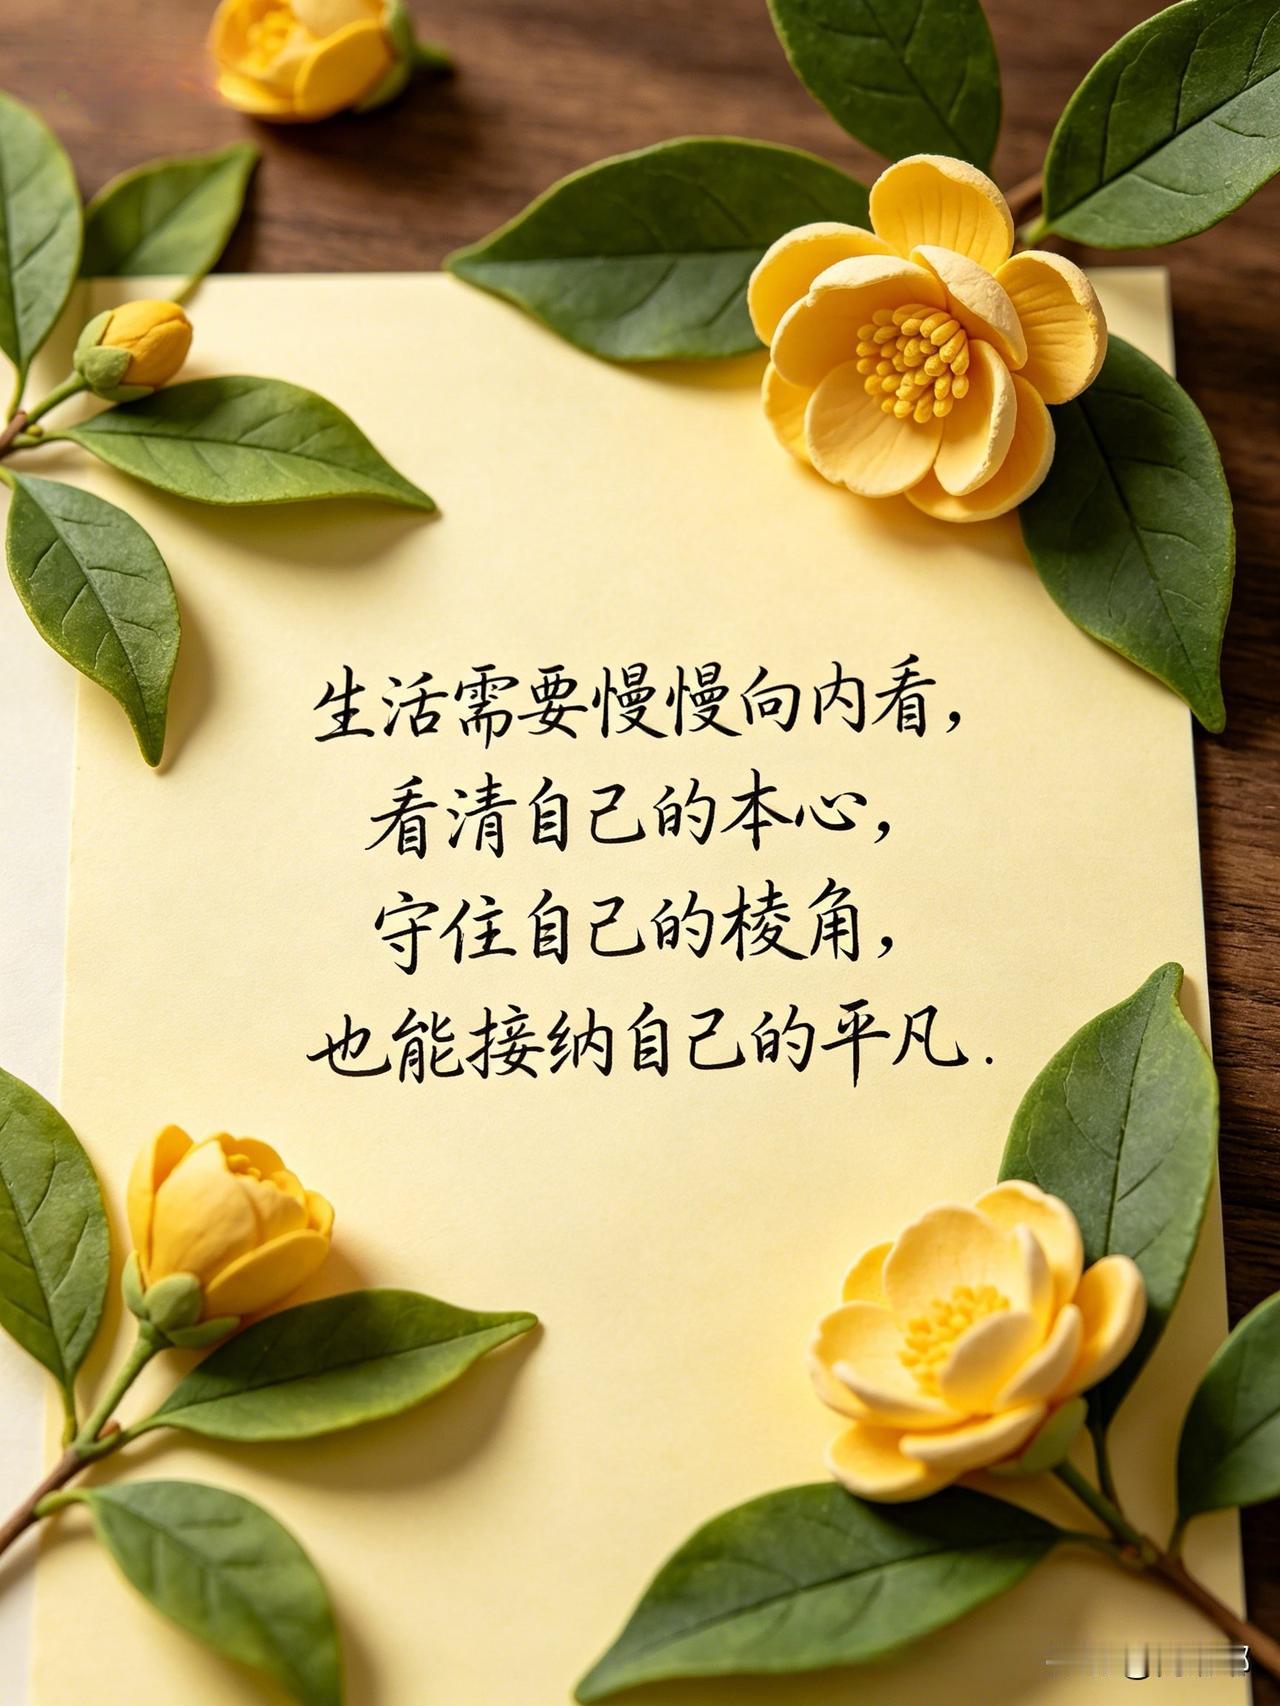 生活需要慢慢向内看，
看清自己的本心，
守住自己的棱角，
也能接纳自己的平凡.